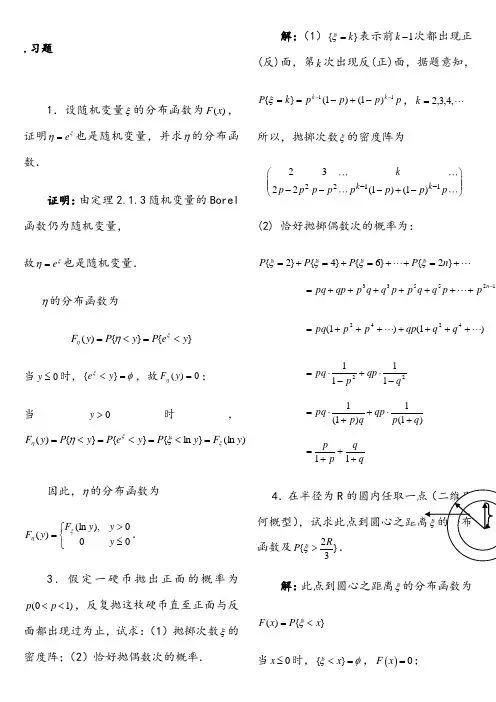 .习题
1．设随机变量ξ的分布函数为F(x)，
证明η=e^ξ也是随机变量，并求η的分布函
数．
证明:由定理2.1.3随机变量的Borel
函数仍为随机变量，
故η=e^ξ也是随机变量．
η的分布函数为
F_η(y)=P{η<y}=P{e^ξ<y}
当y≤0时，{e^ξ<y}=ϕ，故F_η(y)=0；
当 y>0 时 ，
F_η(y)=P{η<y}=P{e^ξ<y}=P{ξ<ln y}=F_ξ(ln y)
因此，η的分布函数为
F_η(y)={F_ξ(ln y), y>0
0 y≤0．
3．假定一硬币抛出正面的概率为
p(0<p<1)，反复抛这枚硬币直至正面与反
面都出现过为止，试求：（1）抛掷次数ξ的
密度阵；（2）恰好抛偶数次的概率．
解：（1）{ξ=k}表示前k-1次都出现正
(反)面，第k次出现反(正)面，据题意知，
P{ξ=k}=p^{k-1}(1-p)+(1-p)^{k-1}p，k=2,3,4,⋯
所以，抛掷次数ξ的密度阵为
(2 3 … k …
2p-2p^2 p-p^2 … p^{k-1}(1-p)+(1-p)^{k-1}p …)
(2) 恰好抛掷偶数次的概率为：
P{ξ=2}+P{ξ=4}+P{ξ=6}+⋯+P{ξ=2n}+⋯
=pq+qp+p^3q+q^3p+p^5q+q^5p+⋯+p^{2n-1}
=pq(1+p^2+p^4+⋯)+qp(1+q^2+q^4+⋯)
=pq·1/(1-p^2)+qp·1/(1-q^2)
=pq·1/((1+p)q)+qp·1/(p(1+q))
=p/(1+p)+q/(1+q)
4．在半径为R的圆内任取一点（二维
何概型），试求此点到圆心之距离ξ的分布
函数及P{ξ>2R/3}．
解：此点到圆心之距离ξ的分布函数为
F(x)=P{ξ<x}
当x≤0时，{ξ<x}=ϕ，F(x)=0；